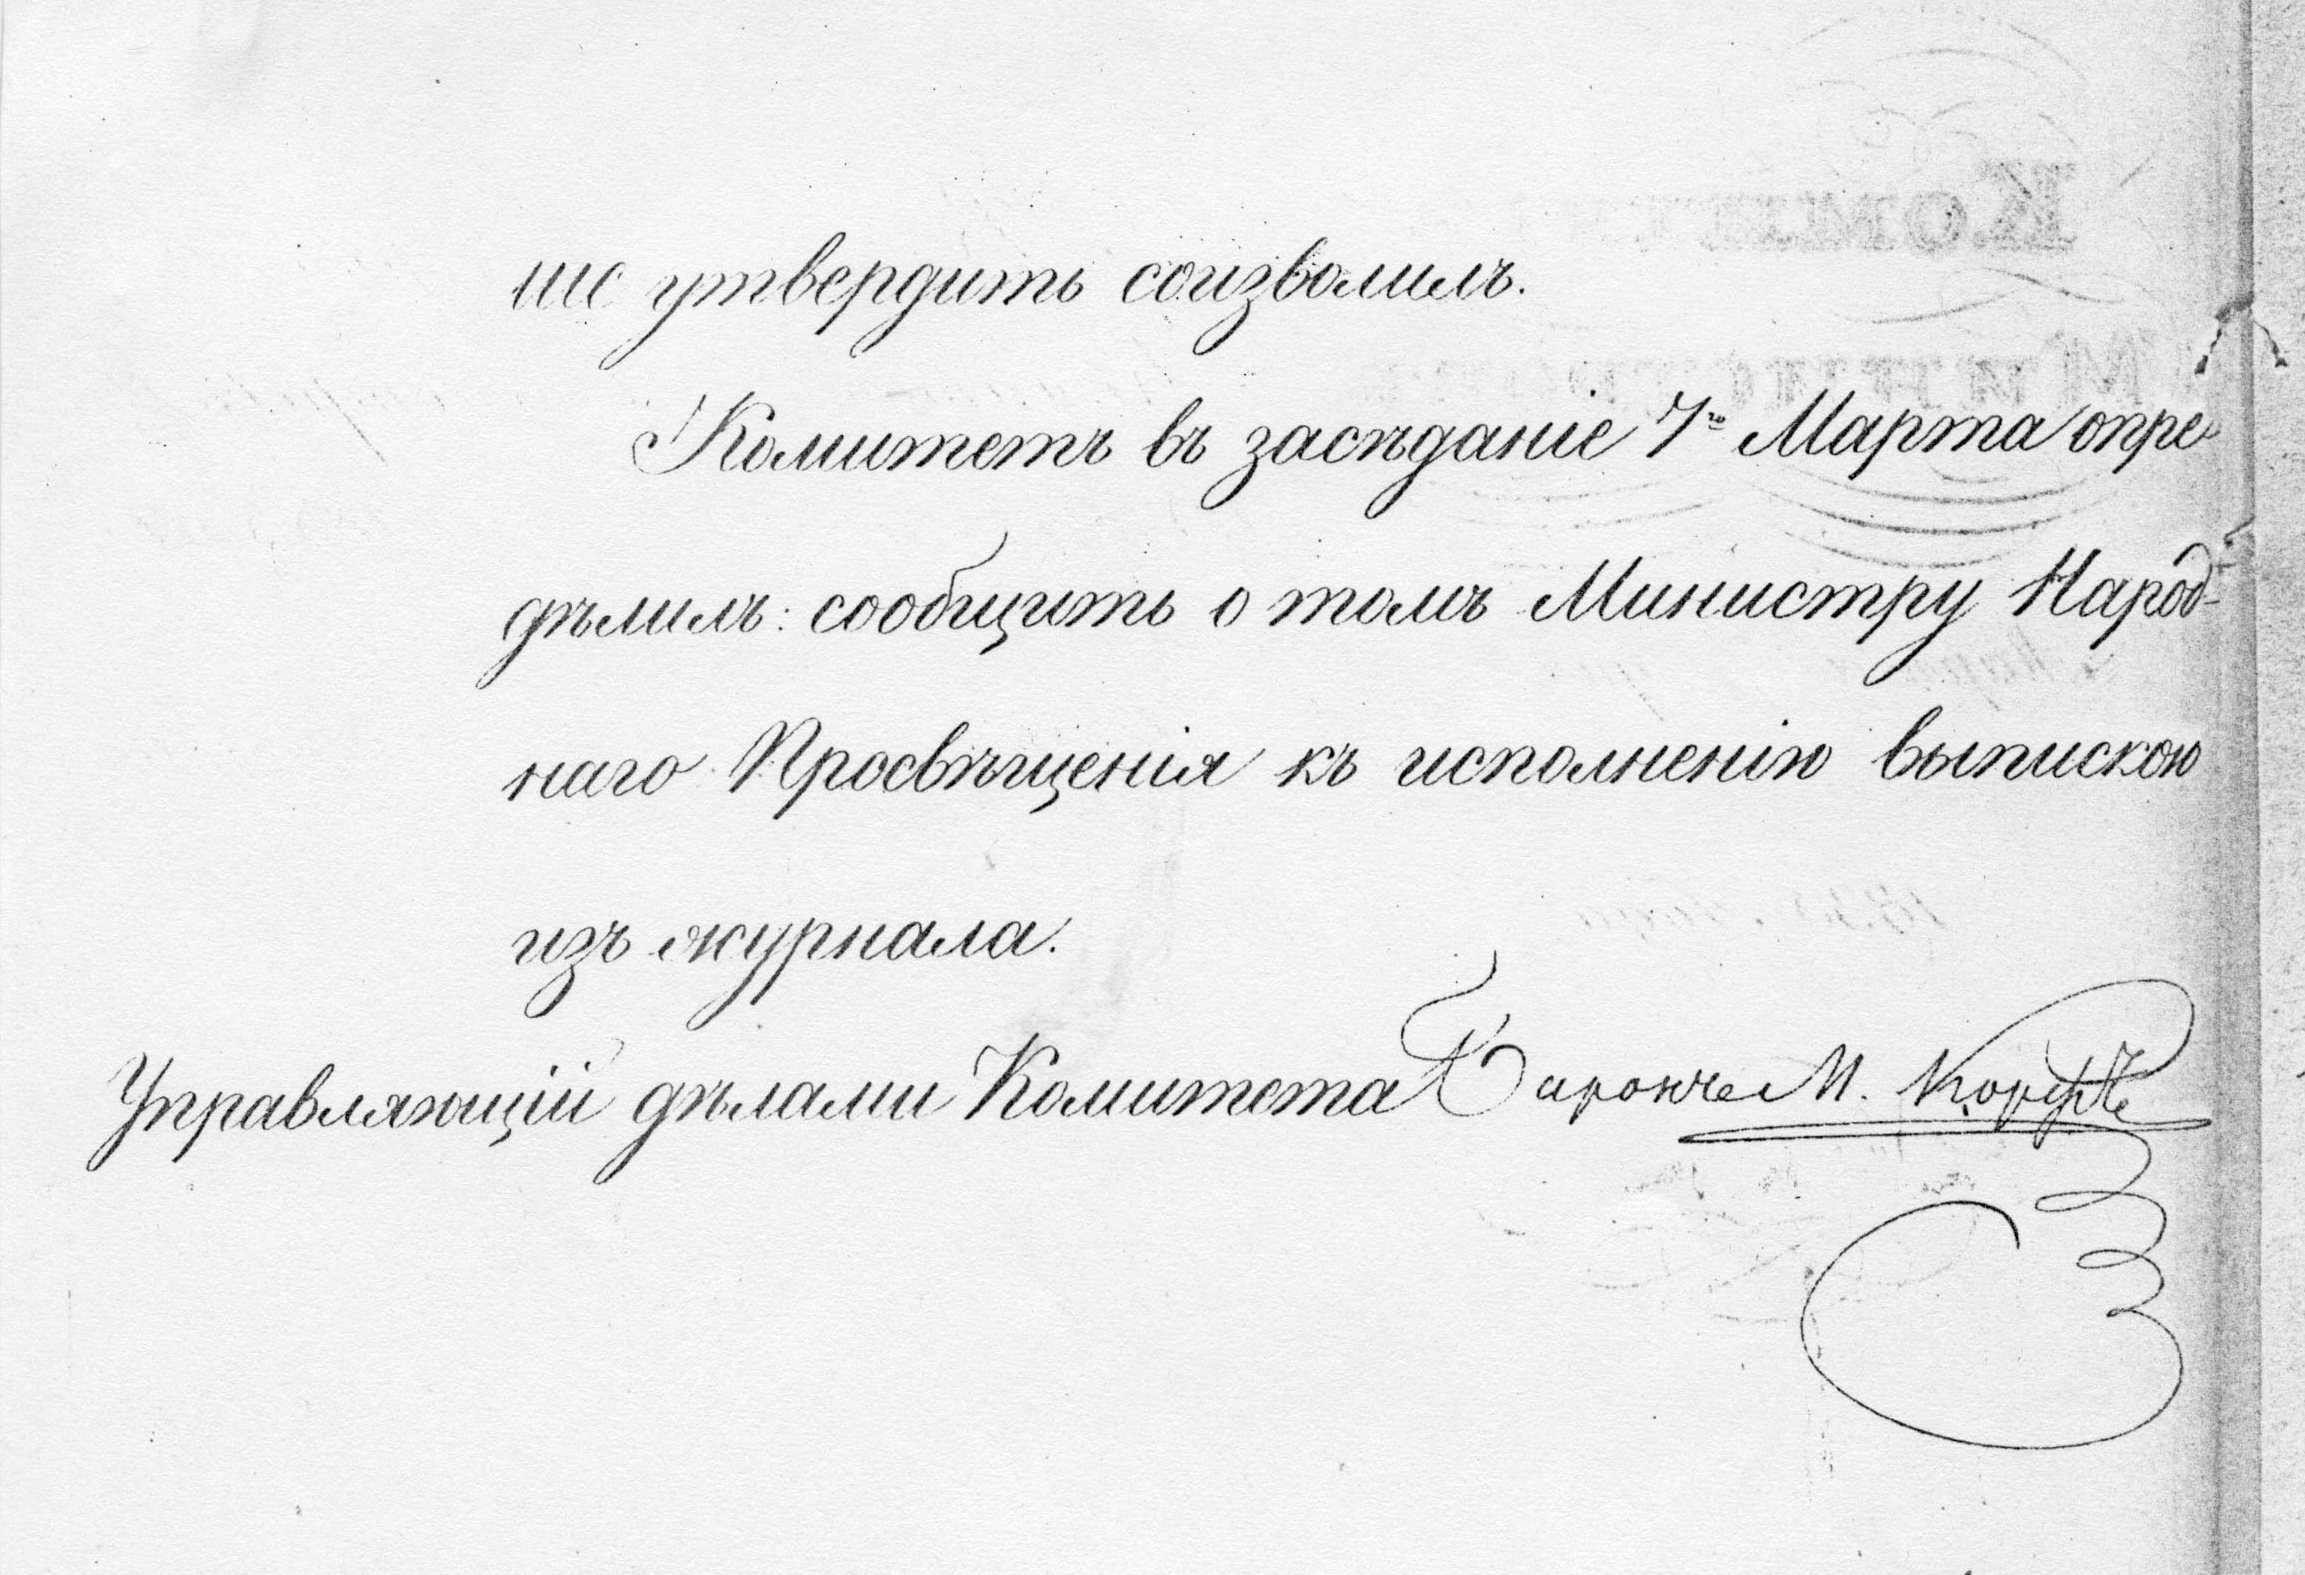 ше утвердить соизволилъ.
Комитетъ въ засѣданіе 7го Марта опре-
дѣлилъ: сообщить о томъ Министру Народ-
наго Просвѣщенія къ исполненію выпискою
изъ журнала.
Управляющій дѣлами Комитета Баронъ М. Корфъ